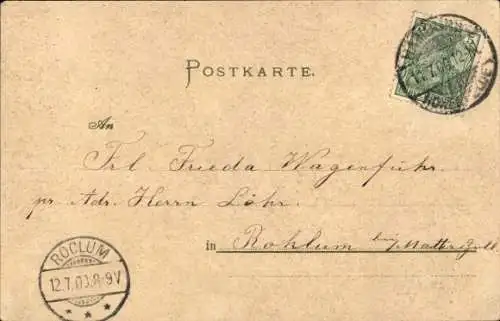 POSTKARTE.
An
Frl Frieda Wagenführ.
pr Adr. Herrn Löhr.
in Rohlum bei Mattierzoll
ROCLUM
12.7.03. 8-9V